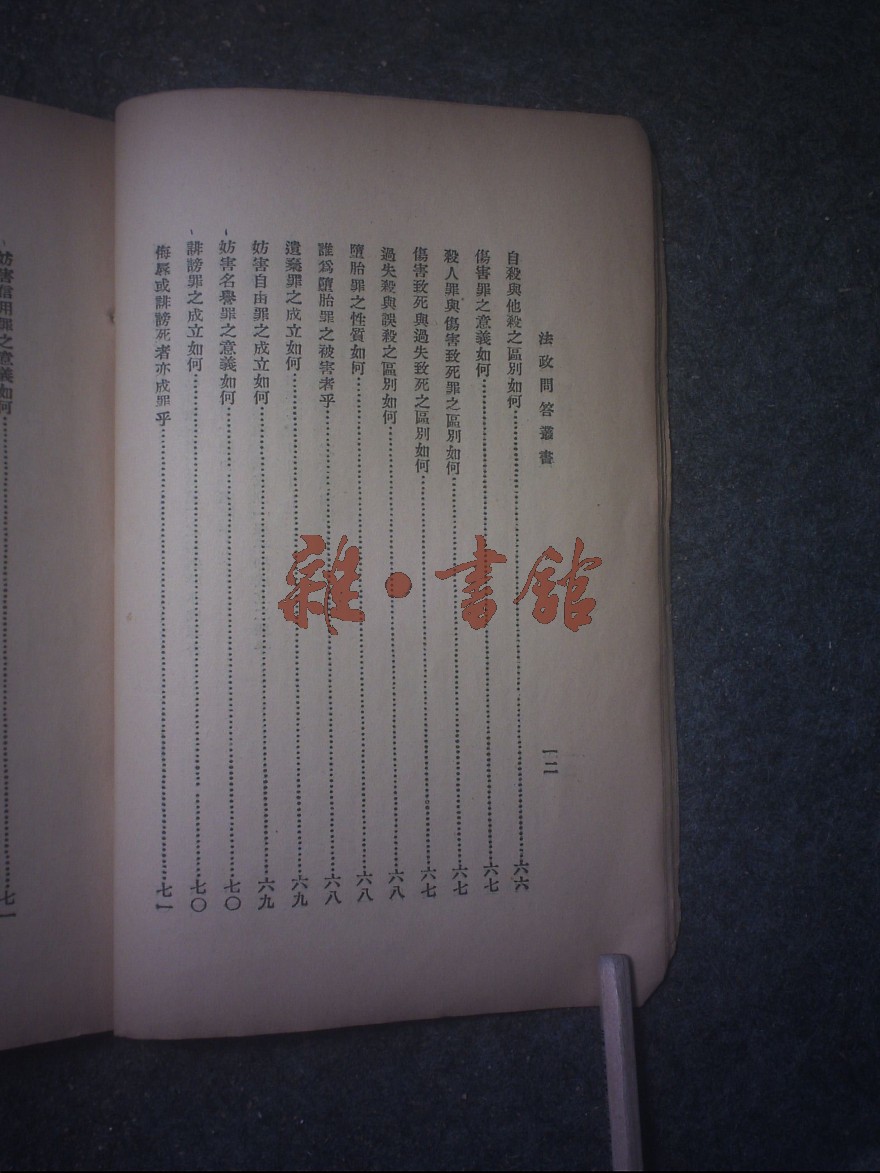 法政問答叢書
一二
自殺與他殺之區別如何……六六
傷害罪之意義如何……六七
殺人罪與傷害致死罪之區別如何……六七
傷害致死與過失致死之區別如何……六七
過失殺與誤殺之區別如何……六八
墮胎罪之性質如何……六八
誰爲墮胎罪之被害者乎……六八
遺棄罪之成立如何……六九
妨害自由罪之成立如何……六九
妨害名譽罪之意義如何……七〇
誹謗罪之成立如何……七〇
侮辱或誹謗死者亦成罪乎……七一
妨害信用罪之意義如何……七一
雜·書館